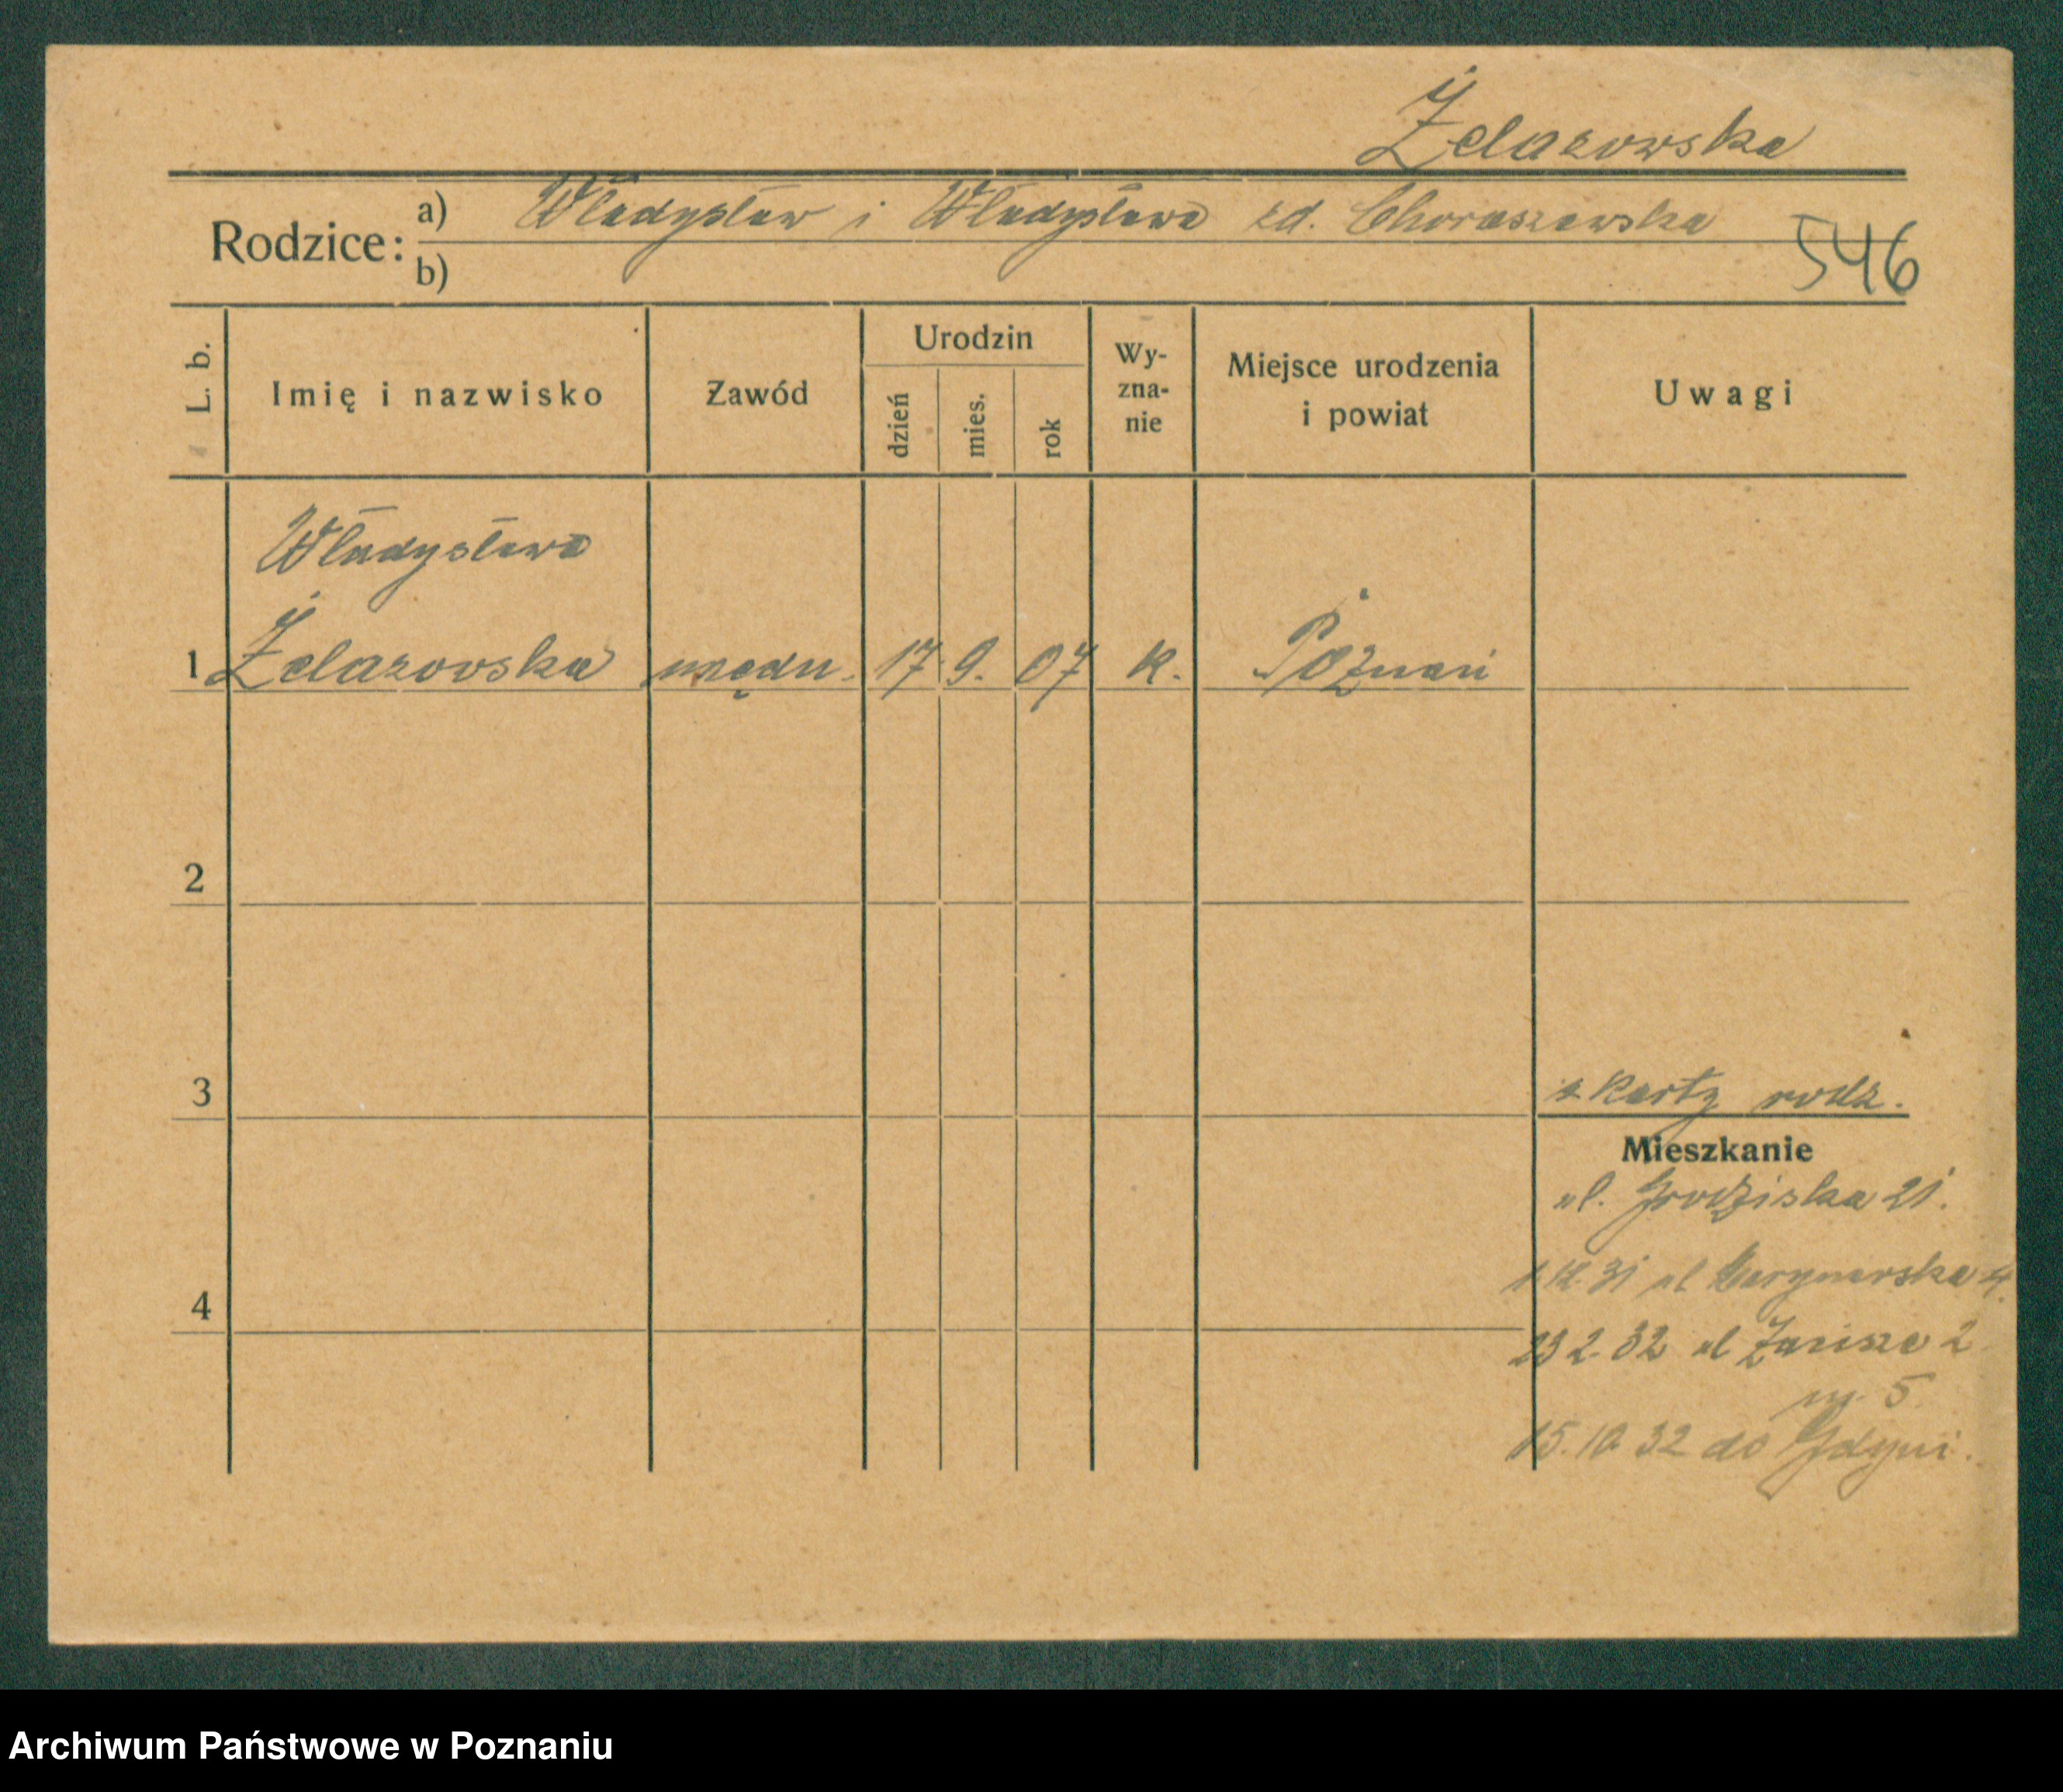 Żelazowska
Rodzice: a) Władysław i Władysława zd. Choraszewska
b)
546
L. b.
Imię i nazwisko
Zawód
Urodzin
dzień
mies.
rok
Wy-
zna-
nie
Miejsce urodzenia
i powiat
Uwagi
Władysława
1 Żelazowska urzędn. 17. 9. 07 k. Poznań
2
3
z karty rodz.
Mieszkanie
ul. Grodziska 21.
4
1.12.31 ul Marynarska 4.
23 2. 32 ul Zacisze 2
m. 5
15.10 32 do Gdyni.
Archiwum Państwowe w Poznaniu